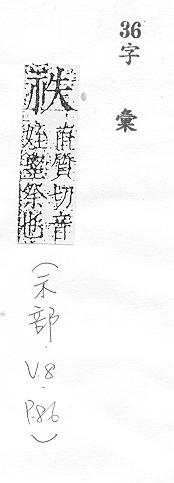 36字彙
祑
直質切音
姪祭也
(示部.V.8.P.86)